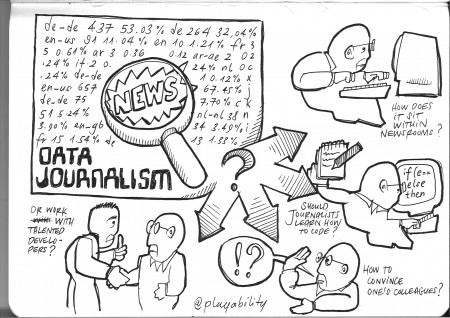 de-de 437 53.03% de 264 32.04%
en-us 91 11.04% en 10 1.21% fr 3
5 0.61% ar 3 0.36 0.12 ar-ae 2 02
.24% it 2 0. 24% nl 06
.24% de-de 1 0.12% x
en-us 657 67.45% j
de-de 75 7.70% c k
51 5.24% nl-nl 38 n
3.90% en-gb 34 3.49% i
fr 15 1.54% de 13 1.33%
NEWS
DATA
JOURNALISM
?
HOW DOES
IT SIT
WITHIN
NEWSROOMS?
if (e==
else
then
SHOULD
JOURNALISTS
LEARN HOW
TO CODE?
OR WORK
WITH
TALENTED
DEVELO-
PERS?
!?
HOW TO
CONVINCE
ONE'S COLLEAGUES?
@playability